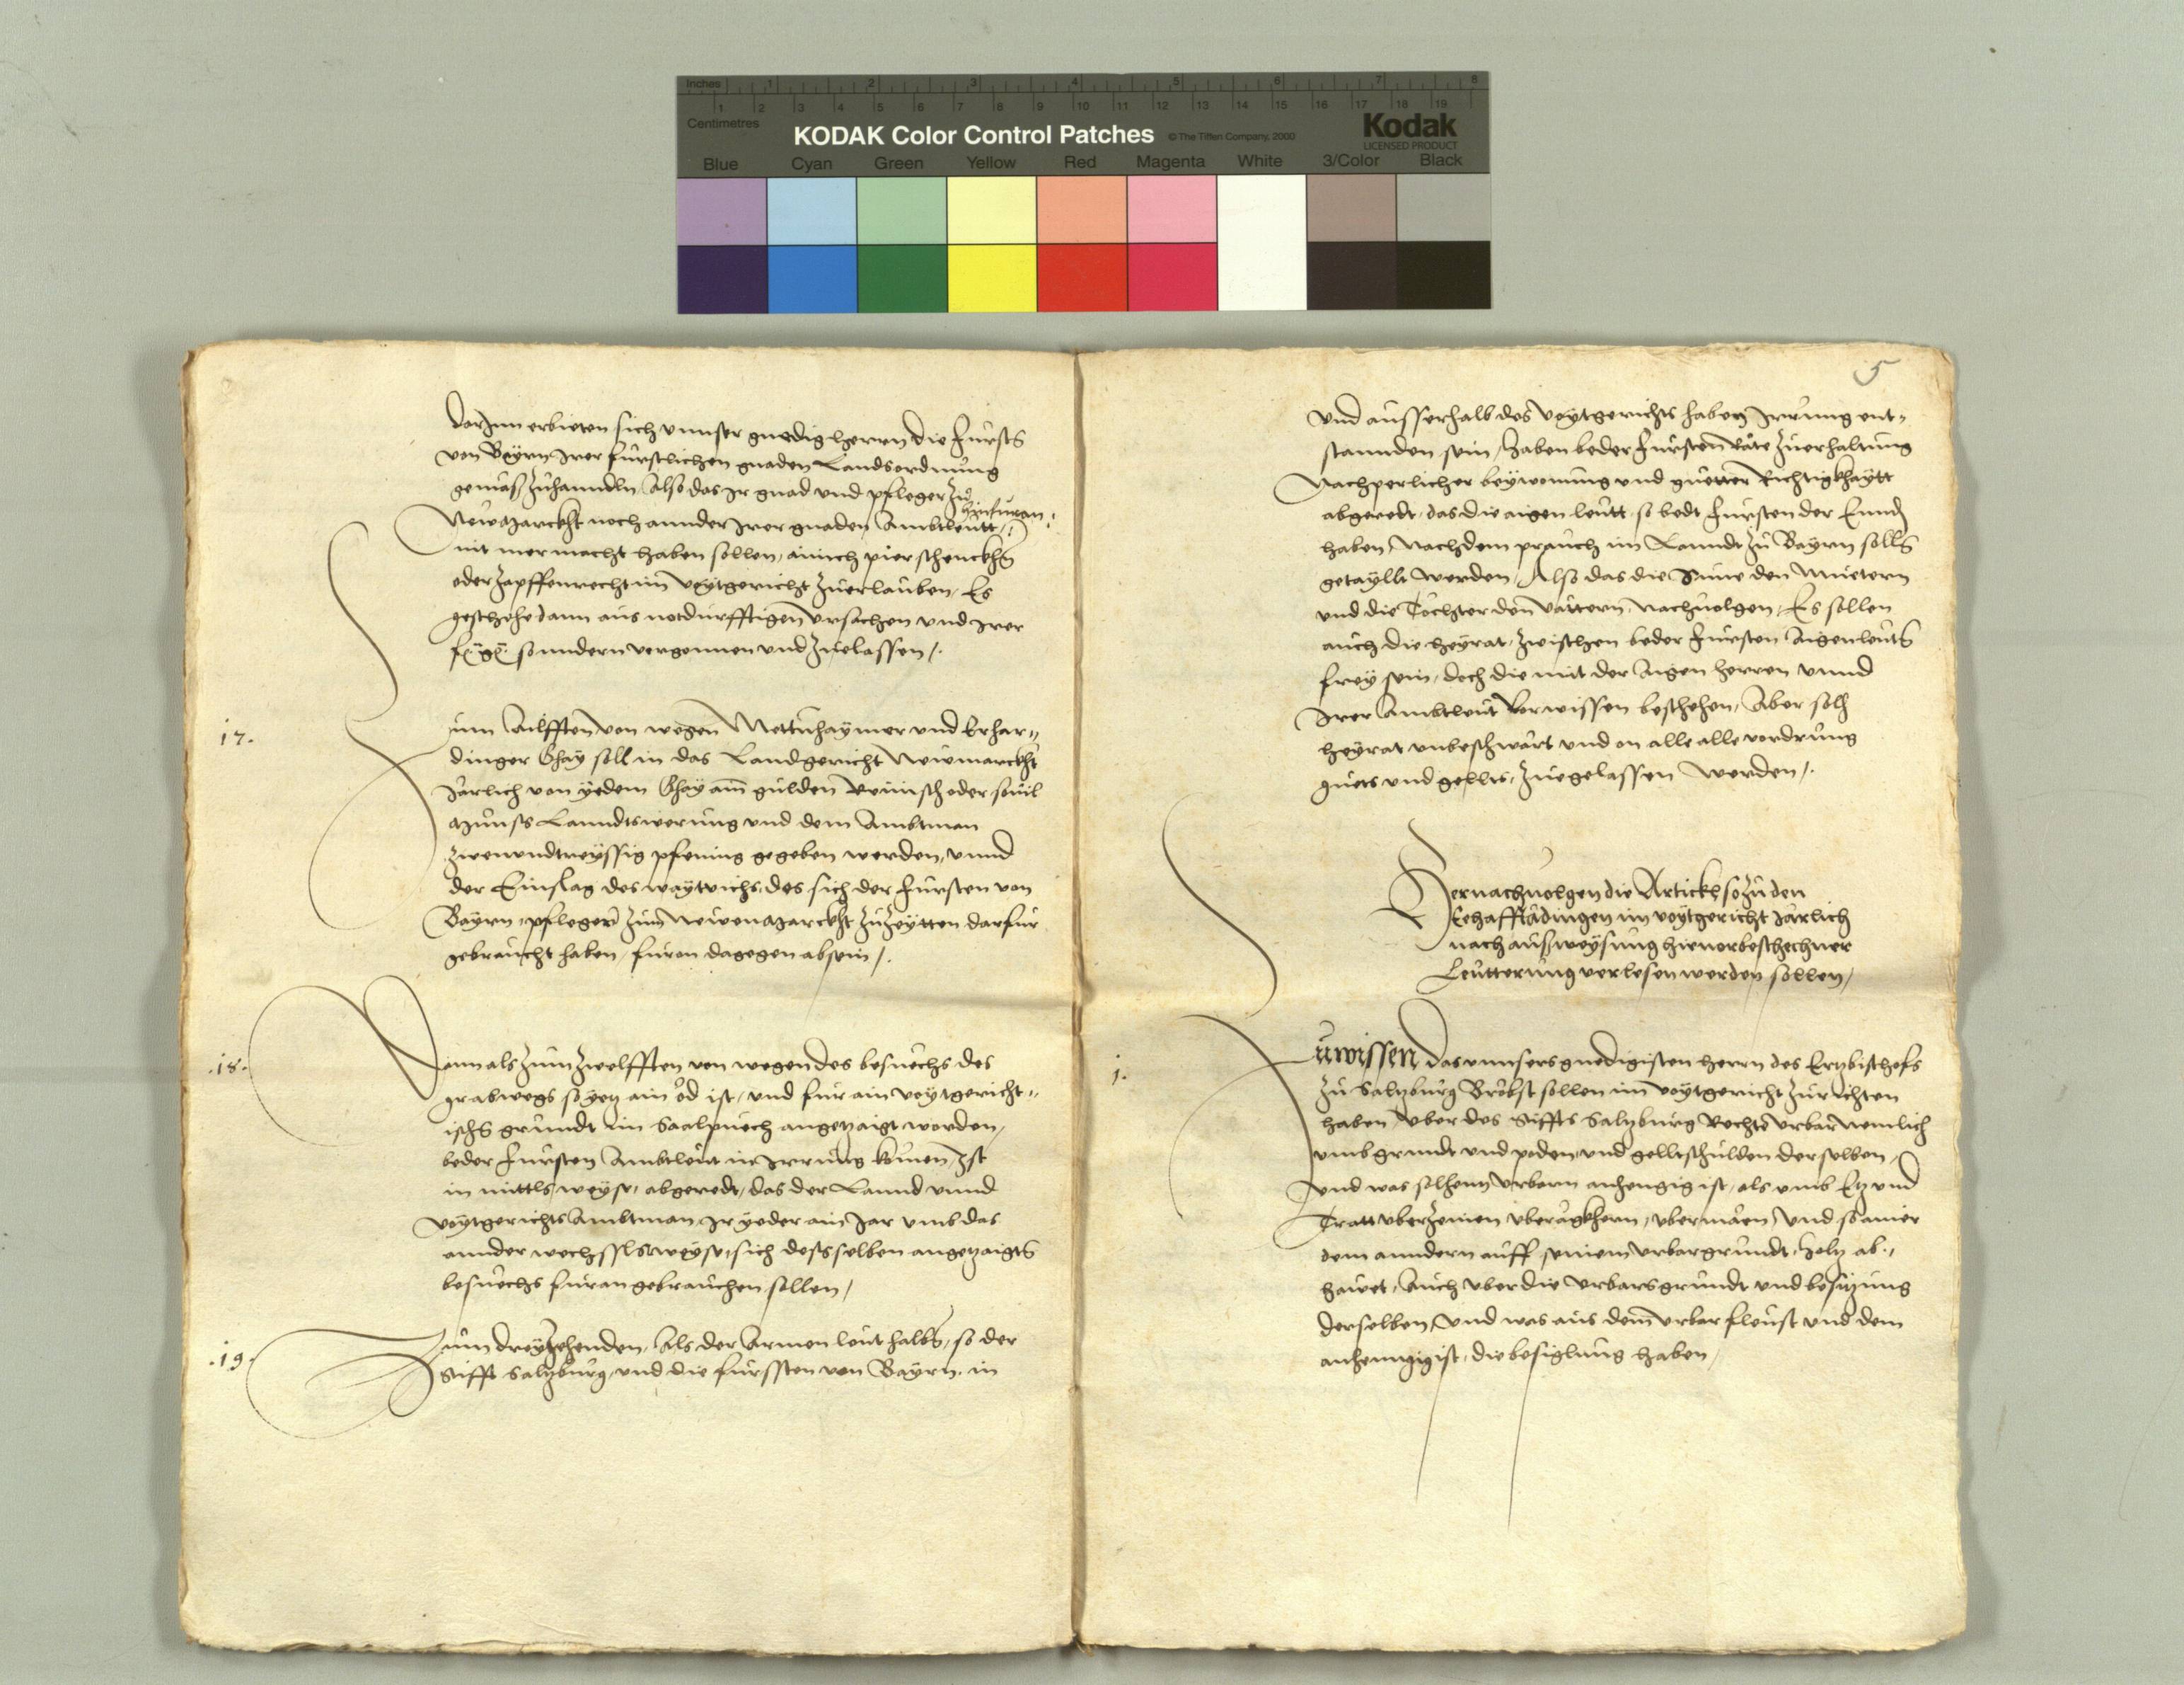 Inches 1 2 3 4 5 6 7 8
1 2 3 4 5 6 7 8 9 10 11 12 13 14 15 16 17 18 19
Centimetres
KODAK Color Control Patches © The Tiffen Company, 2000 Kodak
LICENSED PRODUCT
Blue Cyan Green Yellow Red Magenta White 3/Color Black
darInn erbieten sich unnser gnedig herren die Fursts
von Bayrn Irer furstlichen gnaden Landsordnung
gemäß zuhanndln Also das Ir gnad und pfleger zu
hinfuran
Newmarckht noch annder Irer gnaden Ambtleutt
nit mer macht haben sollen, ainich pier schenckhs
oder zapffenrecht im voytgericht zuerlauben, Es
geschehe dann aus notdurfftigen ursachen und Irer
sonndern vergonnen und zuelassen /.
17.
zum Ailfften von wegen Mettnhaymer und Erhar„
dinger Ghay soll in das Landgericht Newmarckht
Järlich von yedem Ghay ain gulden Reinisch oder sovil
Munss Lanndtswerung und dem Ambtman
zwenundtreyssig pfening gegeben werden, unnd
der Einslag des waytvichs, des sich der Fursten von
Bayrn, pfleger zum Newenmarckht zuzeytten darfur
gebraucht haben, furon dagegen absein /.
.18.
Wann als zum zwelfften von wegen des besuechs des
grabwegs so yetz ain öd ist, und fur ain voytgericht„
ischs grundt im Saalpuech angetzaigt worden,
beder Fursten Ambtleut in Irrung komen, Ist
in mittls weyse, abgeredt, das der Lannd unnd
voytgerichts Ambtman, Ir yeder ain Jar umb das
annder wechsslsweyse, sich desselben angetzaigts
besuechs furan gebrauchen sollen /
.19.
Zum dreyzehenden, Als der Armen leut halbs, so der
Stifft Saltzburg, und die furssten von Bayrn, in
5
und ausserhalb des voytgerichts haben Irrung ent„
stannden sein, haben beder Fursten Räte zuerhaltung
Nachperlicher beywonung und guetter Richtigkhaytt
abgeredt, das die aigen leutt, so bedt Fursten der Ennd
haben, Nach dem prauch im Lanndt zu Bayrn solls
getayllt werden, Also das die Sune den Muetern
und die Töchter den vättern, Nachvolgen, Es sollen
auch die heyrat, zwischen beder Fursten Aigenleuts
frey sein, doch die mit der Aigen herren unnd
Irer Ambtleut Vorwissen beschehen, Aber solh
heyrat unbeschwärt und on alle alle vordrung
guets und gellts, zuegelassen werden /.
Hernachvolgen die Artickl so zu den
Eehafftädingen im voytgericht Järlich
nach außweysung hievorbeschechner
Leutterung verlesen werden sollen /
1.
Zuwissen das unnsers gnedigisten herrn des Ertzbischofs
zu Saltzburg Bröbst sollen im voytgericht zurichten
haben, uber des Stiffts Saltzburg Rechts urbar Nemlich
umb grundt und poden, und gelltschulden derselben,
und was solhem urbarn anhengig ist, als umb Etz und
Tratt uberzeinen uberägkhern, ubermäen, und so ainer
dem anndern auff seinem urbargrundt, holtz ab„
hawet, Auch uber die urbarsgrundt und besitzung
derselben, und was aus dem urbar fleust und dem
anhenngig ist, die besiglung haben /